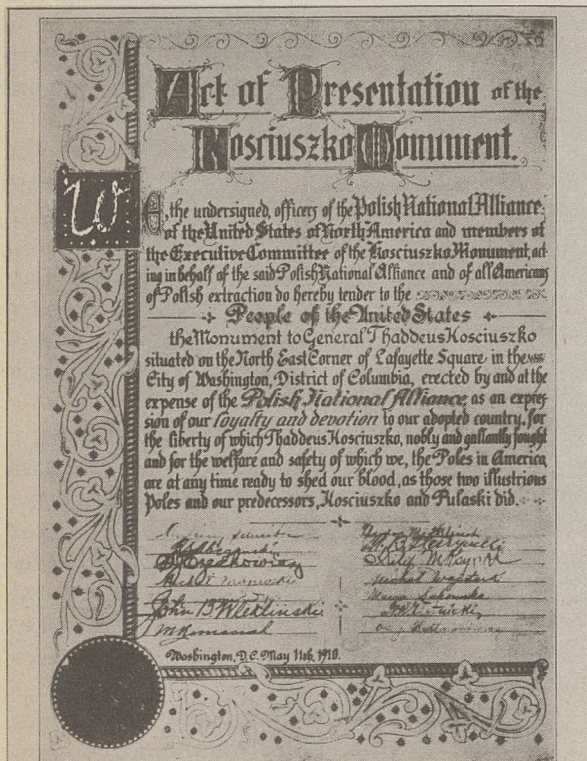 Act of Presentation of the
Kosciuszko Monument.
WE, the undersigned, officers of the Polish National Alliance
of the United States of North America and members of
the Executive Committee of the Kosciuszko Monument, act
ing in behalf of the said Polish National Alliance and of all Americans
of Polish extraction do hereby tender to the
People of the United States
the Monument to General Thaddeus Kosciuszko
situated on the North East Corner of Lafayette Square in the
City of Washington, District of Columbia, erected by and at the
expense of the Polish National Alliance, as an expres
sion of our loyalty and devotion to our adopted country, for
the liberty of which Thaddeus Kosciuszko, nobly and gallantly fought
and for the welfare and safety of which we, the Poles in America
are at any time ready to shed our blood, as those two illustrious
Poles and our predecessors, Kosciuszko and Pulaski did.
John B
Washington, D.C. May 11th, 1910.